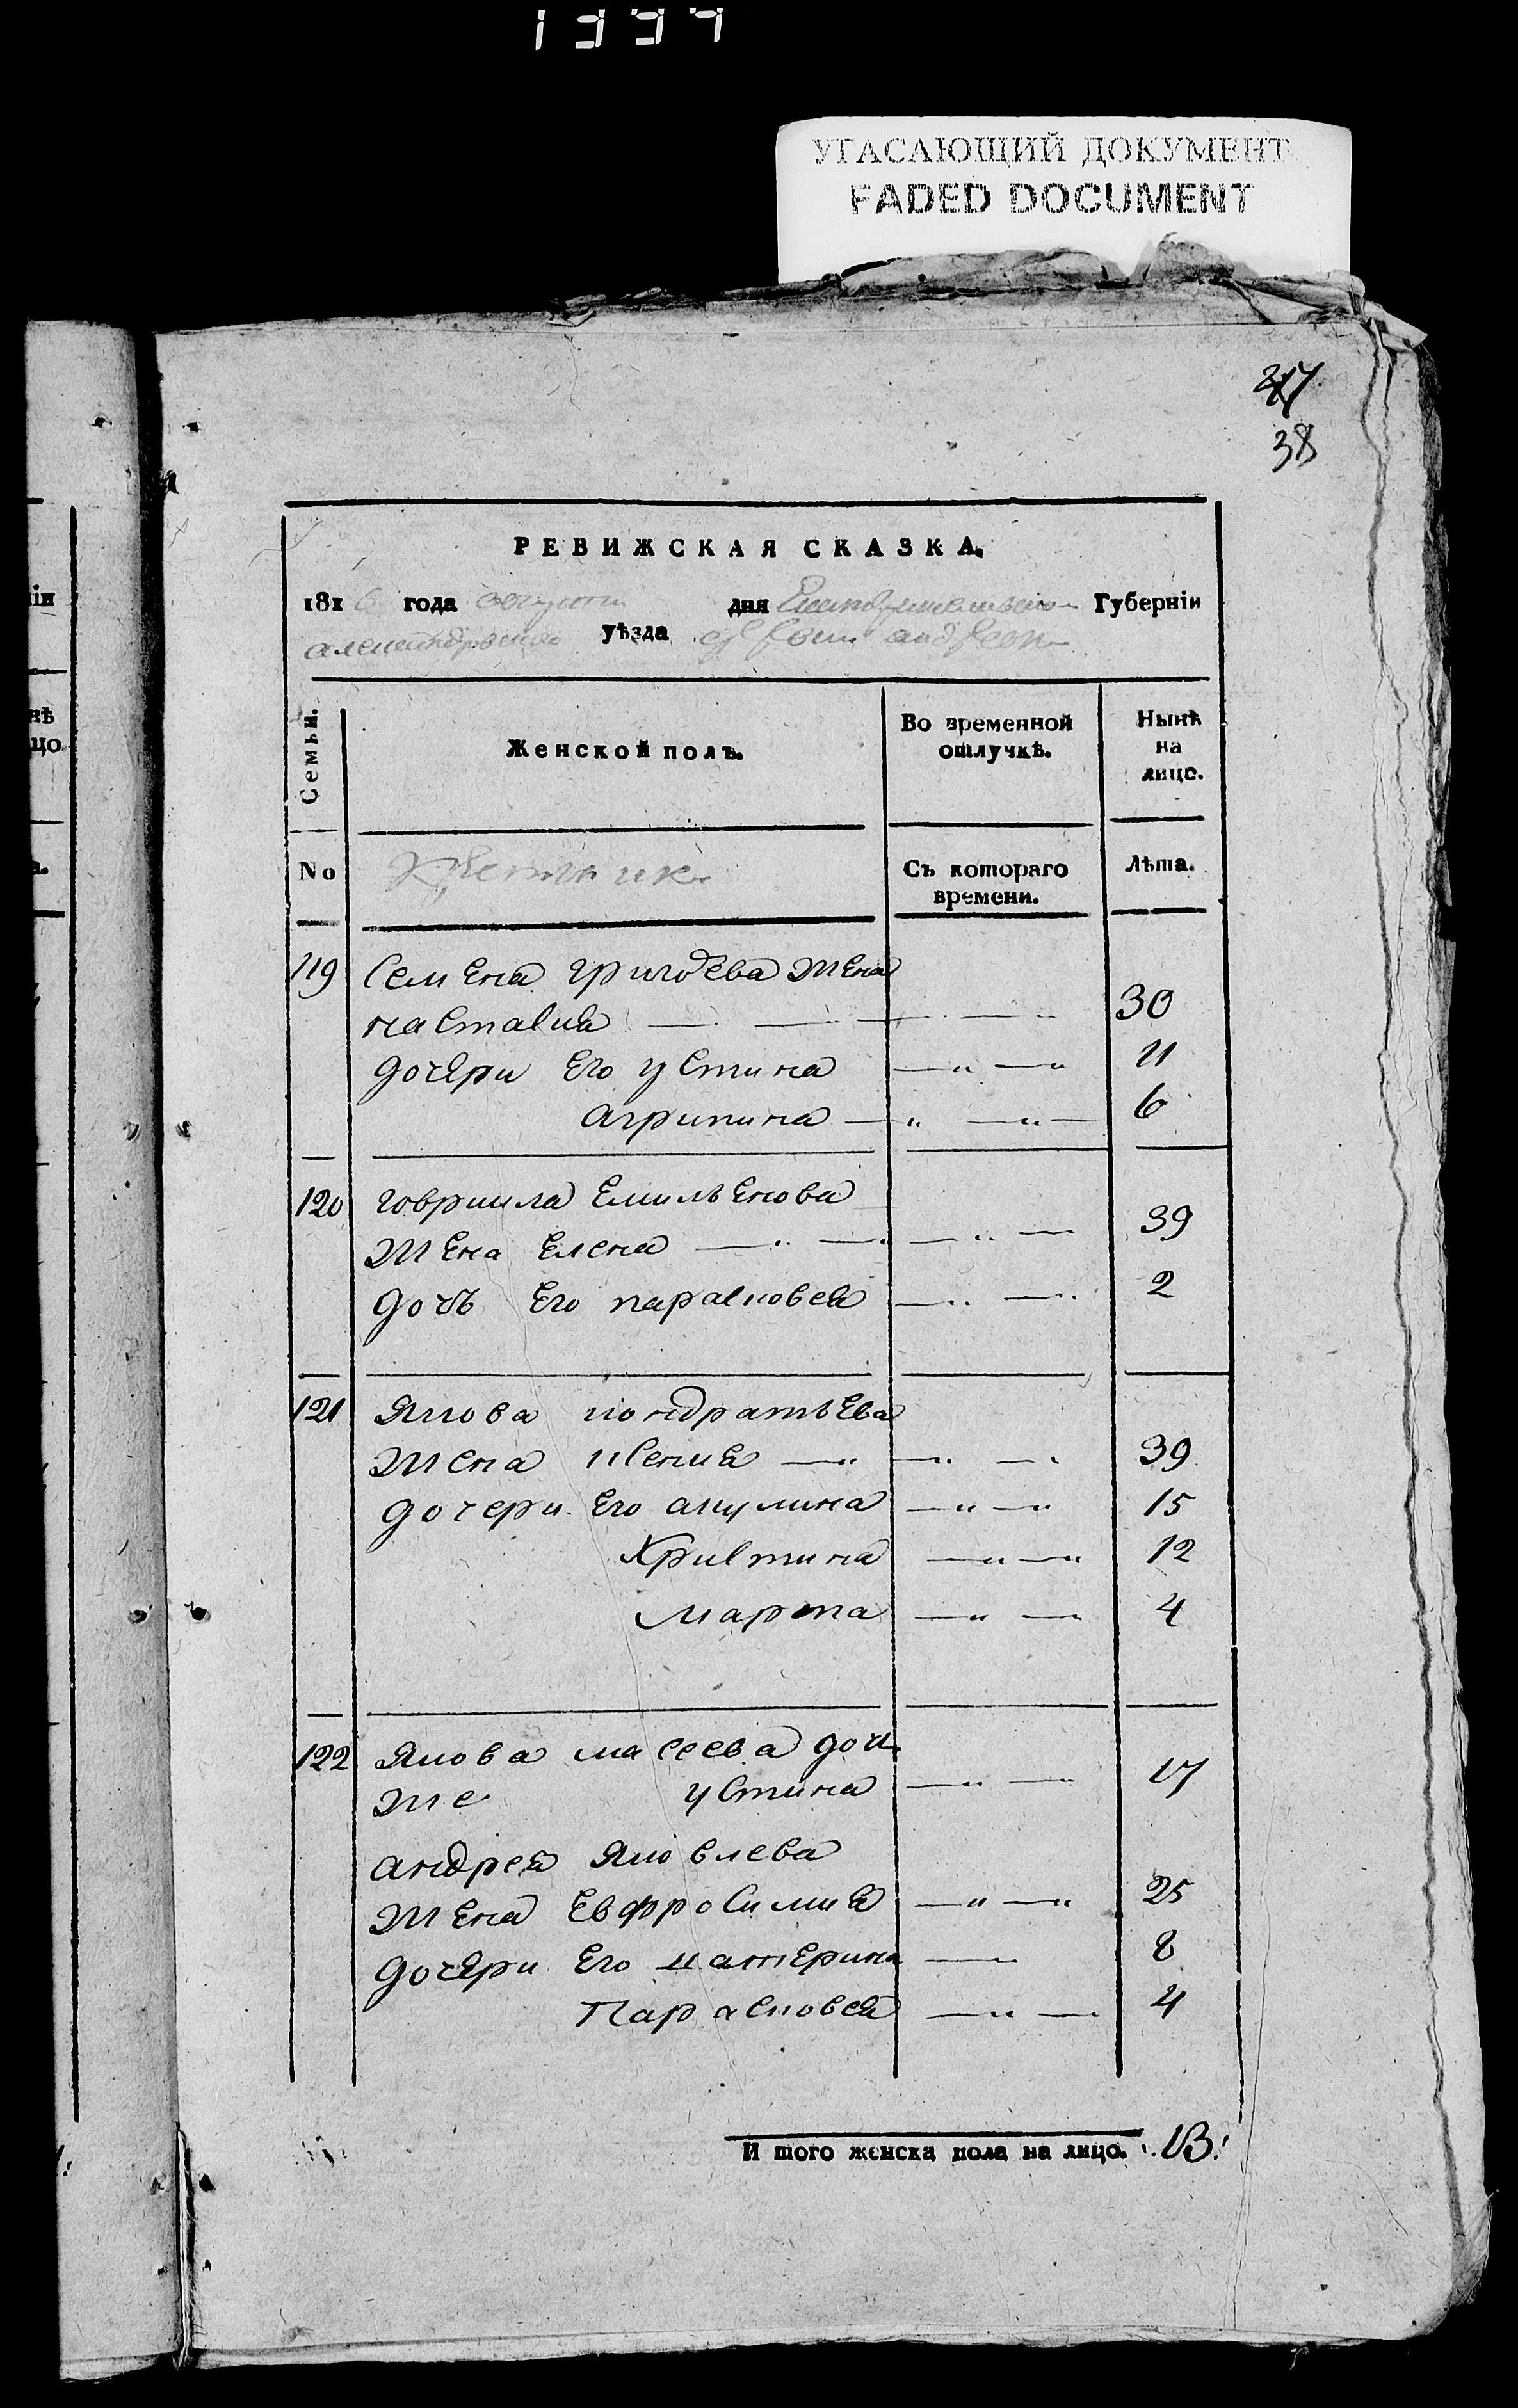 1997
УГАСАЮЩИЙ ДОКУМЕНТ
FADED DOCUMENT
38
РЕВИЖСКАЯ СКАЗКА.
1816 года августа дня Губерніи
уѣзда
Семьи.
Женской полъ.
Во временной отлучкѣ.
Нынѣ на лицо.
No
Съ котораго времени.
Лѣта.
119 Семена григоева жена
настасия 30
дочери Его устина 11
агрипина 6
120 говриила Емильенова
жена Елена 39
дочь Его парасковея 2
121 Якова кондратьева
жена ксения 39
дочери Его акулина 15
христина 12
марта 4
122 Якова масеева доч
же устина 17
андрея Яковлева
жена Евфросимия 25
дочери Его катерина 8
Парасковея 4
И того женска пола на лицо. 13.